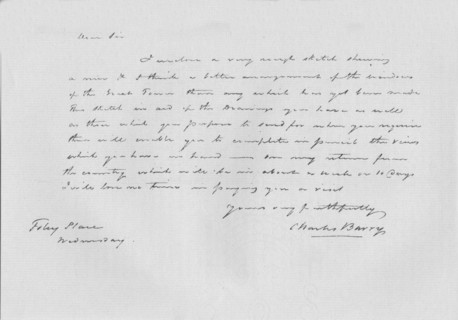 Dear Sir
I enclose a very rough sketch shewing
a new & I think a better arrangement of the windows
of the Great Tower than any which has yet been made
The sketch in aid of the Drawings you have as well
as those which you propose to send for when you require
them will enable you to complete in pencil the views
which you have in hand on my return from
the country which will be in about a week or 10 Days
I will lose no time in paying you a visit
Yours very faithfully
Charles Barry
Foley Place
Wednesday.